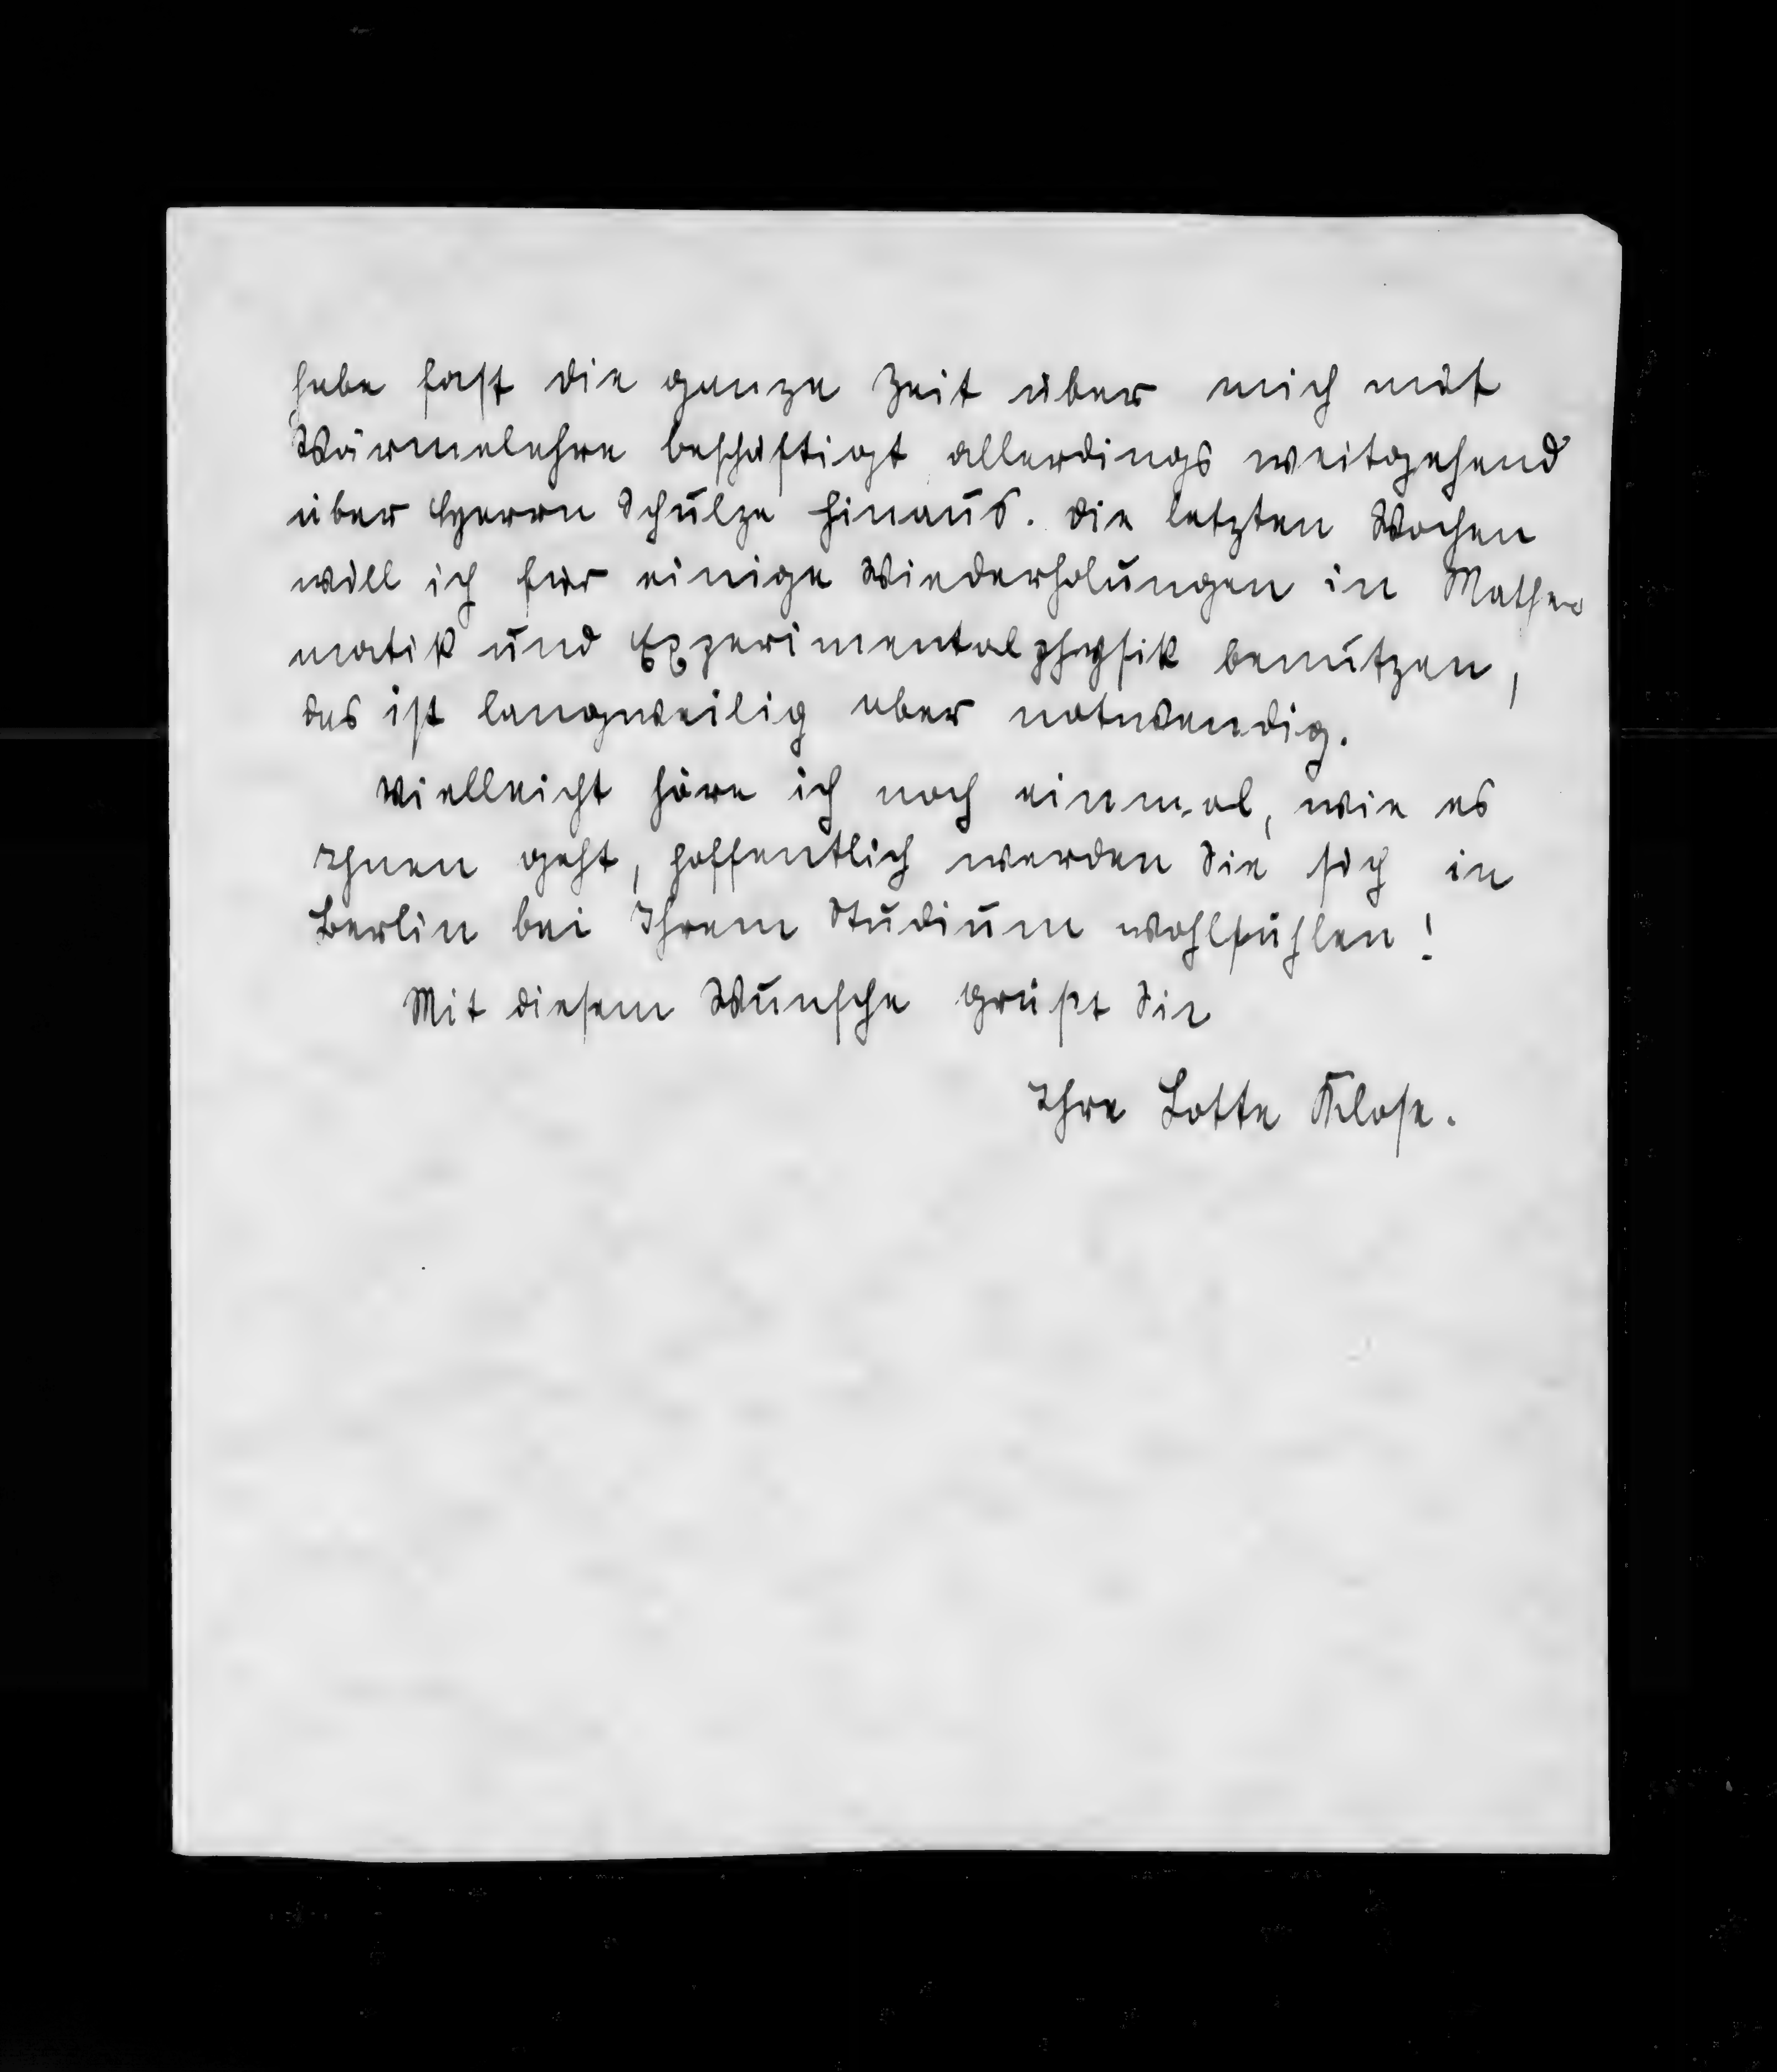 habe fast die ganze Zeit über mich mit
Wärmelehre beschäftigt allerdings weitgehend
über Herrn Schulze hinaus. Die letzten Wochen
will ich für einige Wiederholungen in Mathe-
matik und Experimentalphysik benutzen,
das ist langweilig aber notwendig.
Vielleicht höre ich noch einmal, wie es
Ihnen geht, hoffentlich werden Sie sich in
Berlin bei Ihrem Studium wohlfühlen!
Mit diesem Wunsche grüßt Sie
Ihre Lotte Klose.